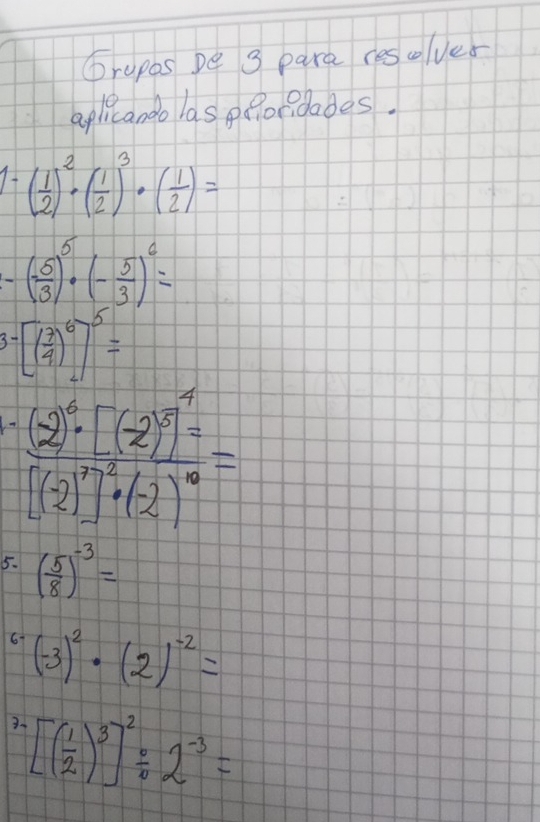 Grupos De 3 para resolver
aplicando las prioridades.
1- (1/2)^2 · (1/2)^3 · (1/2) =
- (5/3)^5 · (-5/3)^6 =
3- [(7/4)^6]^5 =
(-2)^6 · [(-2)^5]^4 =
[(-2)^7]^2 · (-2)^10 =
5- (5/8)^-3 =
6- (-3)^2 · (2)^-2 =
7- [(1/2)^3]^2 ÷ 2^-3 =